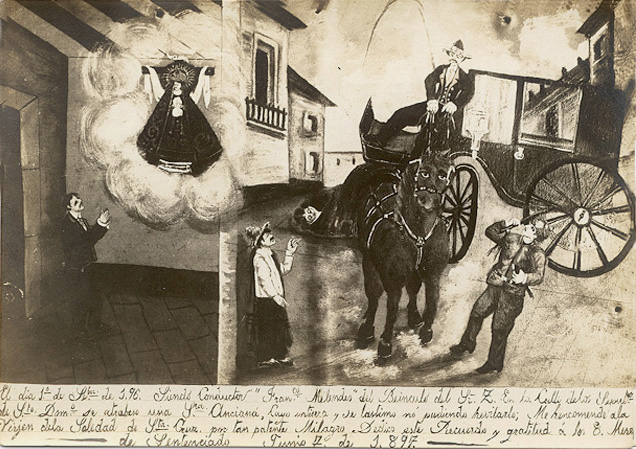 El día 1º de Sbre de 1.96. Siendo Conductor "Franco Melendes" del Beinculo del Sr. Z. En la Calle de los
de Sto. Domo se atrabeso una Sra. Anciana, Callo entiera y se lastimo no pudiendo hevitarlo; Me hencomende a la
Virjen de la Soledad de Sta. Cruz. por tan patente Milagro Dedico este Recuerdo y gratitud á la E. Merse
de Sentenciado Junio 17. de 1.897.